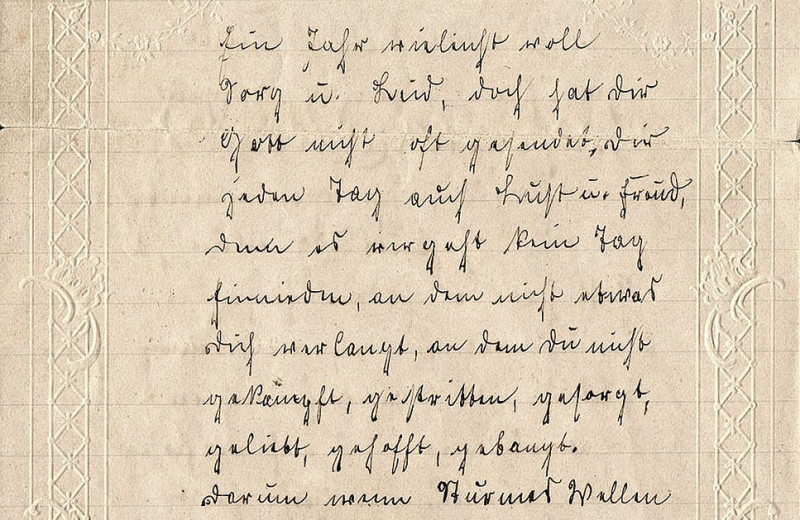 Ein Jahr vieleicht voll
Sorg u. Leid, doch hat dir
Gott nicht oft gesendet, dir
jeden Tag auch Lust u. Freud,
denn es vergeht kein Tag
hinnieden, an dem nicht etwas
dich verlangt, an dem du nicht
gekämpft, gestritten, gesorgt,
geliebt, gehofft, gebangt.
Darum wenn Sturmes Wellen